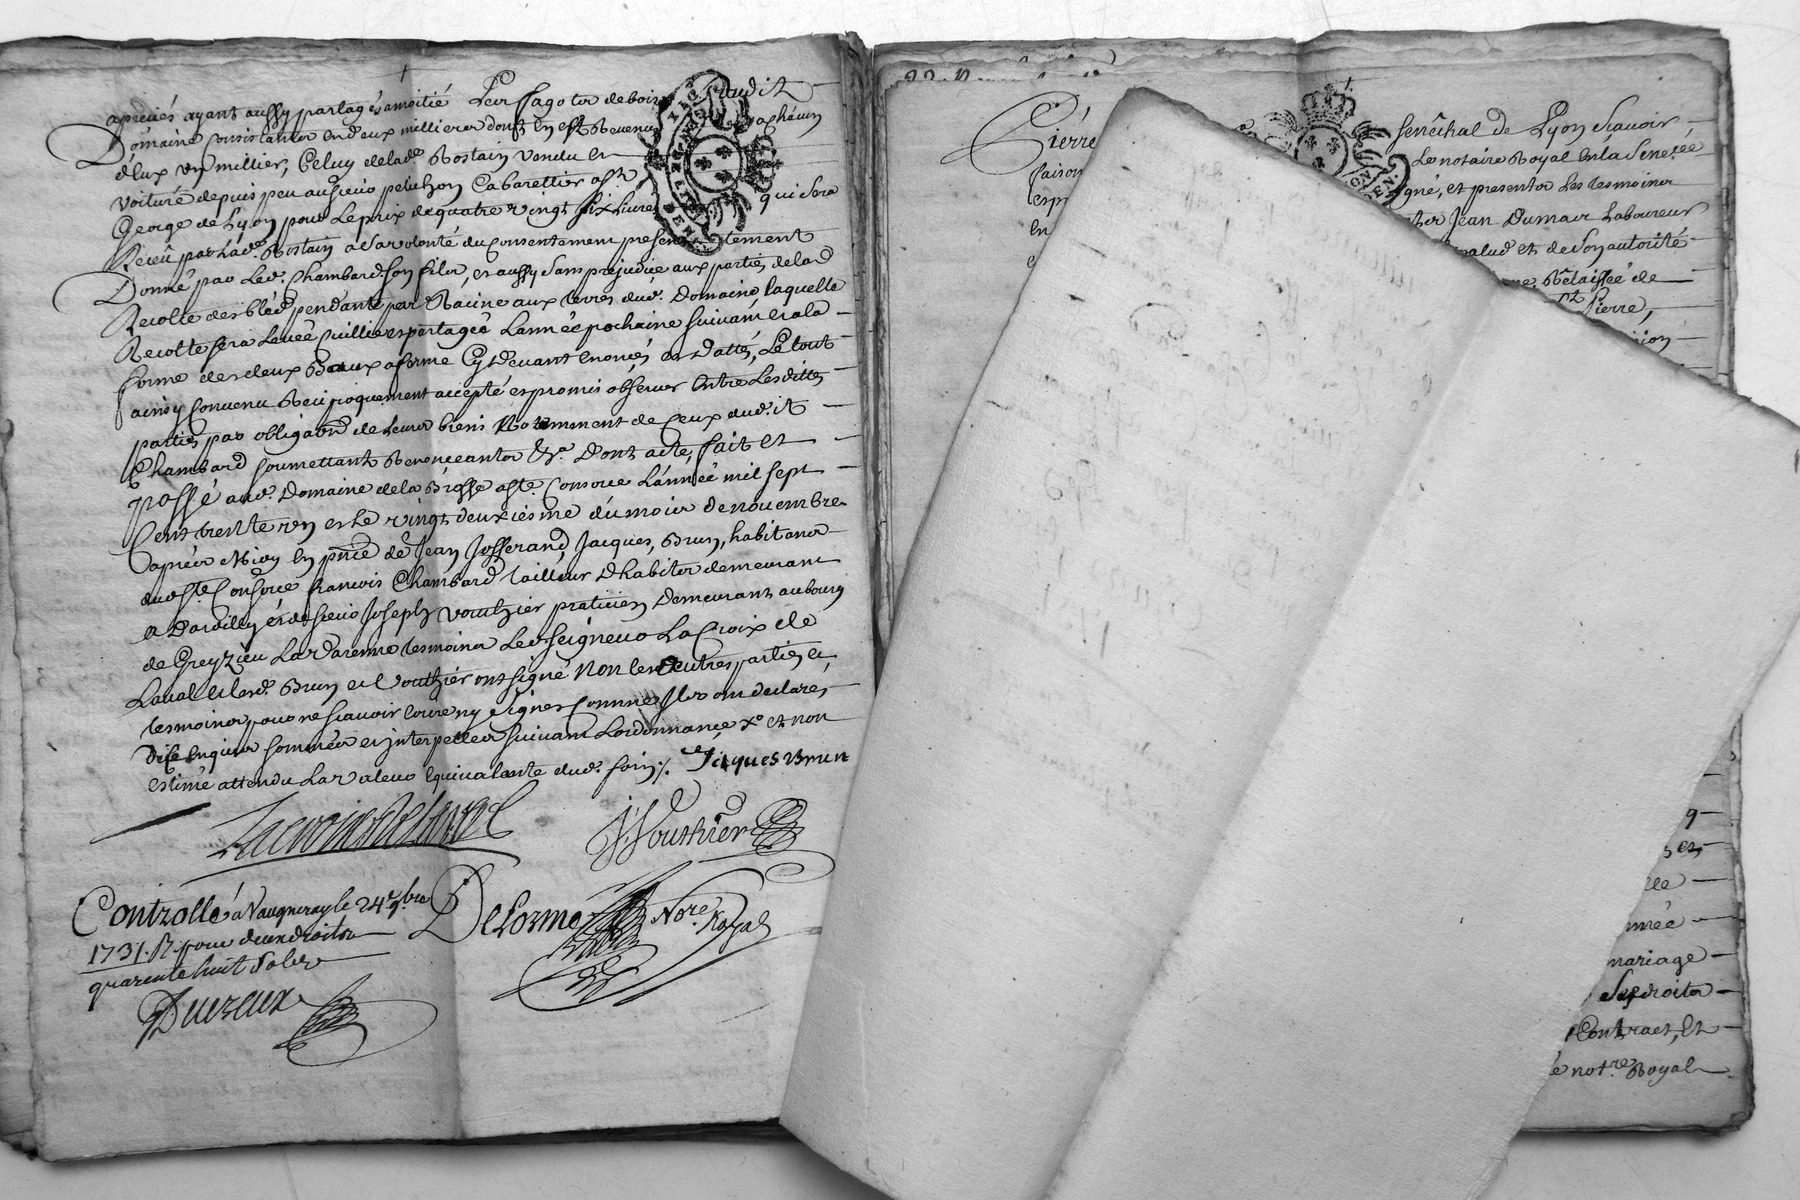 apréués ayant aussy partagés amoitié Leur fagotz de bois dudit
Domaine Consistantz en deux milliers dont en est Revenu a chacun
d'eux un millier, Celuy de lad.e Rostain vendu et
voituré depuis peu au sieur peluchon Cabarettier a St.
George de Lyon pour Le prix de quatre vingt six Livres qui sera
Receu par lad.e Rostain a sa volonté du Consentement presentement
Donné par Led. Chambard son fils, et aussy sans prejudice aux parties de lad
Recolte des bléd pendante par Racine aux terres dud. Domaine laquelle
Recolte sera Levée cuillie et partagée L'année prochaine suivant et a la
forme des deux Beaux a ferme Cy devant enoncés et Dattés, Le tout
ainsy Convenu Reciproquement accepté et promis observer Entre Lesdittes
parties par obligaon de Leurs biens Notemment de Ceux dud.it
Chambard soumettants Renonceants &a. Dont acte, fait et
passé aud. Domaine de la Brosse a Ste. Consorce L'année mil sept
Cent trente un et Le vingt deuxiesme du mois de novembre
apres Midy en pñce de Jean Josserand, Jacques, Brun, habitants
dud. Ste. Consorce francois Chambard tailleur D'habits demeurant
a Dardilly et de sieur Joseph Vouthier praticien Demeurant au bourg
de Greyzieu La Varenne tesmoins Led. seigneur LaCroix de
Laval et lesd. Brun et Vouthier ont signé Non les autres parties et
tesmoins pour ne scavoir Ecrire ny signer Comme Ils ont declaré,
De ce Enquis sommés et interpellés suivant Lordonnance et non
estimé attendu La valeur Equivalente dud. foin ./. Jaques Brun
Lacroix de Laval
J. Vouthier
Controllé a Vaugneray le 24e 9bre
1731. R pour deux droits
quarente huit sols
Duereux
Delorme Nore. Royal
Pierre
Senêchal de Lyon Scavoir
Le notaire Royal En la Sene.ée
igné, et presentz Les tesmoins
Jean Dumair Laboureur
palud et de Son autorité
Rêlaissée de
St. Pierre,
née
mariage
Ses droitz
Contract, Et
é not.re Royal